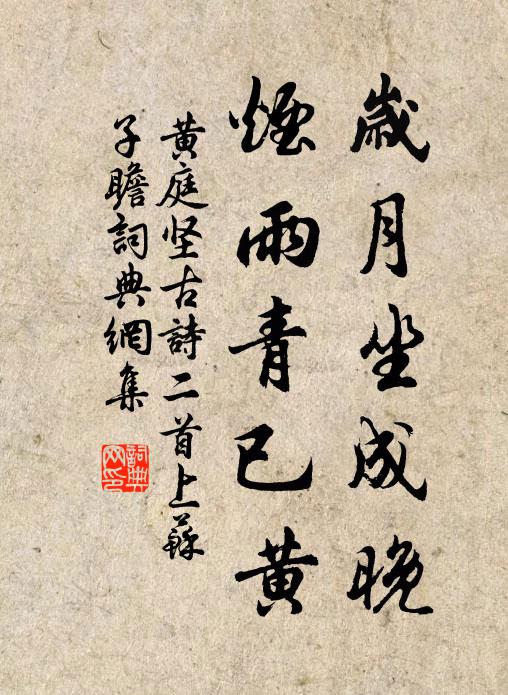 歲月坐成晚
煙雨青已黄
黄庭坚古詩二首上蘇
子瞻詞典網集
詞典
网印